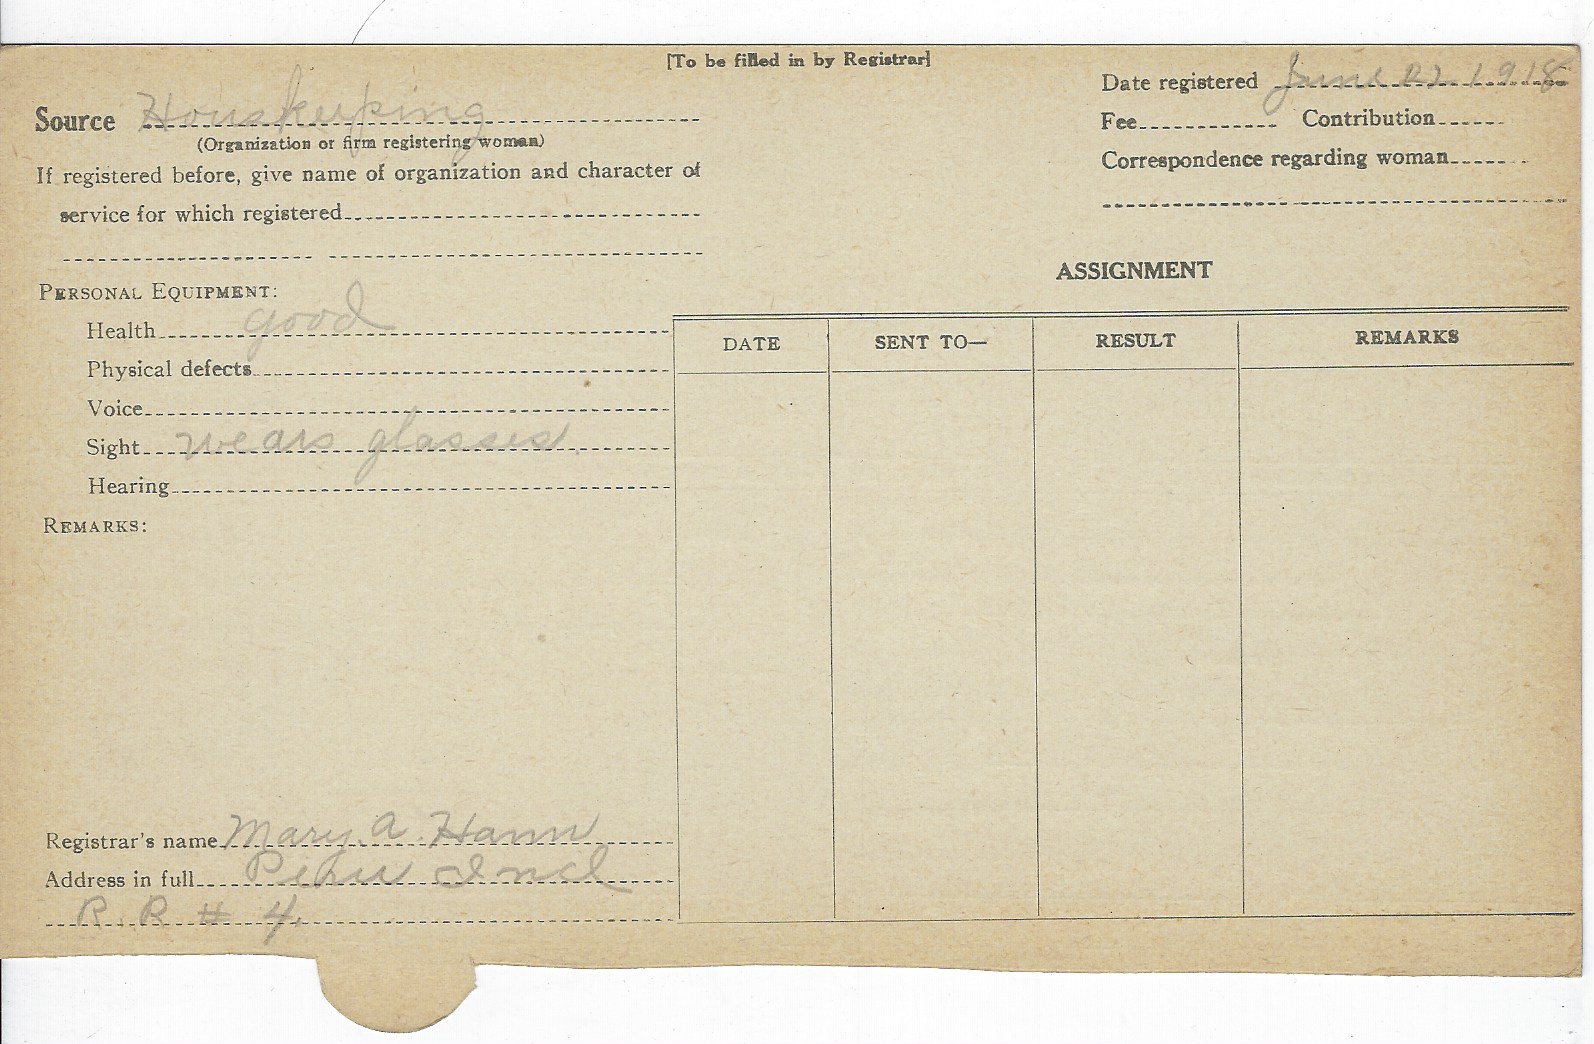 [To be filled in by Registrar]
Source Houskeeping
(Organization or firm registering woman)
If registered before, give name of organization and character of
service for which registered
Date registered June 21 1918
Fee Contribution
Correspondence regarding woman
PERSONAL EQUIPMENT:
Health good
Physical defects
Voice
Sight wears glasses
Hearing
REMARKS:
Registrar's name Mary. A. Hann
Address in full Peru Ind
R. R # 4.
ASSIGNMENT
DATE SENT TO— RESULT REMARKS